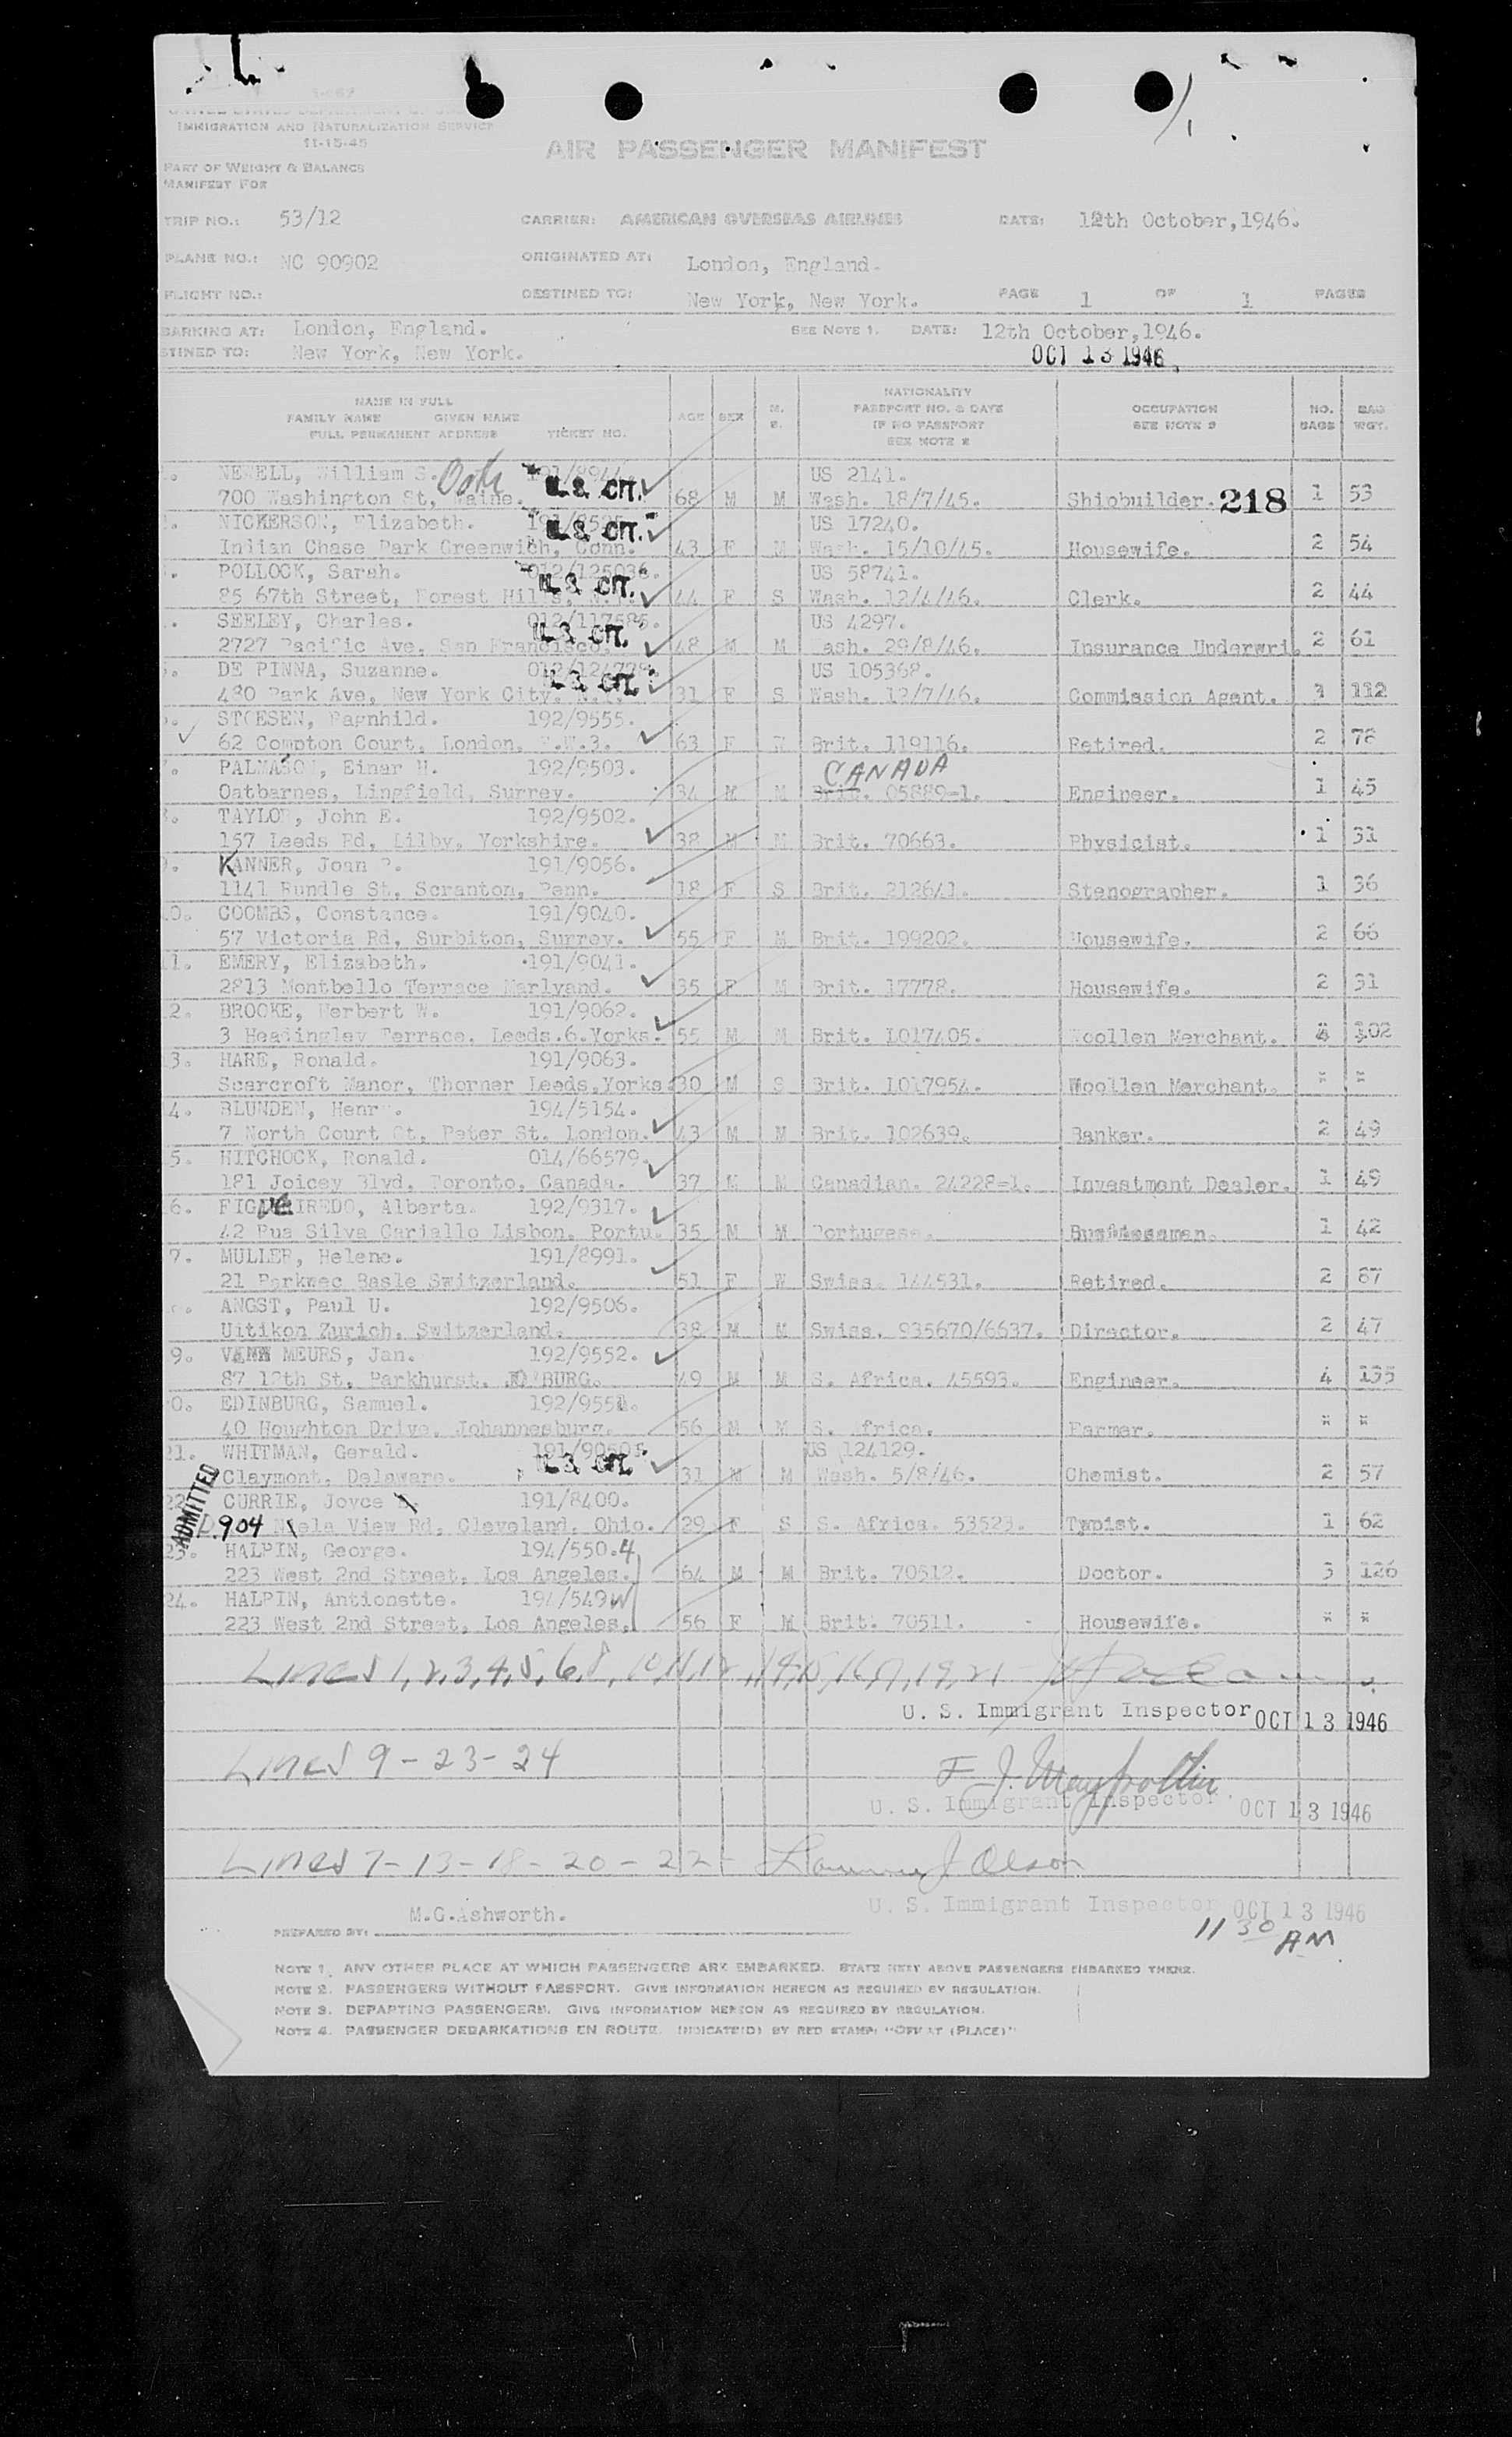 IMMIGRATION AND NATURALIZATION SERVICE
11-15-45
AIR PASSENGER MANIFEST
PART OF WEIGHT & BALANCE
MANIFEST FOR
TRIP NO.: 53/12 CARRIER: AMERICAN OVERSEAS AIRLINES DATE: 12th October,1946.
PLANE NO.: NC 90902 ORIGINATED AT: London, England.
FLIGHT NO.: DESTINED TO: New York, New York. PAGE 1 OF 1 PAGES
BARKING AT: London, England. SEE NOTE 1. DATE: 12th October,1946.
STINED TO: New York, New York. OCT 13 1946
NAME IN FULL
FAMILY NAME GIVEN NAME
FULL PERMANENT ADDRESS TICKET NO.
AGE SEX M. S.
NATIONALITY
PASSPORT NO. & DATE
IF NO PASSPORT
SEE NOTE 2
OCCUPATION
SEE NOTE 3
NO. BAGS
BAG WGT.
NEWELL, William S. 191/8944. US 2141.
700 Washington St, Bath Maine. U.S. CIT. 68 M M Wash. 18/7/45. Shipbuilder. 218 1 53
NICKERSON, Elizabeth. US 17240.
Indian Chase Park Greenwich, Conn. U.S. CIT. 43 F M Wash. 15/10/45. Housewife. 2 54
POLLOCK, Sarah. 012/125036. US 58741.
85 67th Street, Forest Hills, N.Y. U.S. CIT. 44 F S Wash. 12/4/46. Clerk. 2 44
SEELEY, Charles. 012/117585. US 4297.
2727 Pacific Ave, San Francisco. U.S. CIT. 48 M M Wash. 29/8/46. Insurance Underwri. 2 61
DE PINNA, Suzanne. 012/124779. US 105368.
480 Park Ave, New York City, N.Y. U.S. CIT. 31 F S Wash. 12/7/46. Commission Agent. 3 112
STOESEN, Ragnhild. 192/9555.
62 Compton Court, London, N.W.3. 63 F W Brit. 119116. Retired. 2 78
PALMASON, Einar H. 192/9503. CANADA
Oatbarnes, Lingfield, Surrey. 34 M M Brit. 05889-1. Engineer. 1 45
TAYLOR, John E. 192/9502.
157 Leeds Rd, Lilby, Yorkshire. 38 M M Brit. 70663. Physicist. 1 31
KANNER, Joan P. 191/9056.
1141 Rundle St, Scranton, Penn. 18 F S Brit. 212641. Stenographer. 1 36
0. COOMBS, Constance. 191/9040.
57 Victoria Rd, Surbiton, Surrey. 55 F M Brit. 199202. Housewife. 2 66
1. EMERY, Elizabeth. 191/9041.
2813 Montbello Terrace Marlyand. 35 F M Brit. 17778. Housewife. 2 31
2. BROOKE, Herbert W. 191/9062.
3 Headingley Terrace, Leeds.6.Yorks. 55 M M Brit. L017405. Woollen Merchant. 4 102
3. HARE, Ronald. 191/9063.
Scarcroft Manor, Thorner Leeds,Yorks. 30 M S Brit. L017954. Woollen Merchant. " "
4. BLUNDEN, Henry. 194/5154.
7 North Court Gt, Peter St. London. 43 M M Brit. 102639. Banker. 2 49
5. HITCHOCK, Ronald. 014/66579.
181 Joicey Blvd, Toronto, Canada. 37 M M Canadian. 24228-1. Investment Dealer. 1 49
6. FIGUEIREDO, Alberta. 192/9317.
42 Rua Silva Cariallo Lisbon, Portu. 35 M M Portugese. Bussinessman. 1 42
7. MULLER, Helene. 191/8991.
21 Parkweg Basle Switzerland. 51 F W Swiss. 144531. Retired. 2 67
ANGST, Paul U. 192/9506.
Uitikon Zurich, Switzerland. 38 M M Swiss. 935670/6637. Director. 2 47
9. VAN MEURS, Jan. 192/9552.
87 12th St, Parkhurst, JO'BURG. 49 M M S. Africa. 45593. Engineer. 4 135
0. EDINBURG, Samuel. 192/9551.
40 Houghton Drive, Johannesburg. 56 M M S. Africa. Farmer. " "
21. WHITMAN, Gerald. 191/9050. US 124129.
Claymont, Delaware. U.S. CIT. 31 M M Wash. 5/8/46. Chemist. 2 57
ADMITTED
22. CURRIE, Joyce 191/8400.
904 View Rd, Cleveland, Ohio. 29 F S S. Africa. 53523. Typist. 1 62
23. HALPIN, George. 194/550.4
223 West 2nd Street, Los Angeles. 64 M M Brit. 70512. Doctor. 3 126
24. HALPIN, Antionette. 194/549
223 West 2nd Street, Los Angeles. 56 F M Brit. 70511. Housewife. " "
Lines 1,2,3,4,5,6,8,10,11,12,14,15,16,17,19,21
U. S. Immigrant Inspector OCT 13 1946
Lines 9-23-24 F. J.
U. S. Immigrant Inspector OCT 13 1946
Lines 7-13-18-20-22- J Olson
U. S. Immigrant Inspector OCT 13 1946
11 30 AM
PREPARED BY: M.G.Ashworth.
NOTE 1. ANY OTHER PLACE AT WHICH PASSENGERS ARE EMBARKED. STATE NEXT ABOVE PASSENGERS EMBARKED THERE.
NOTE 2. PASSENGERS WITHOUT PASSPORT. GIVE INFORMATION HEREON AS REQUIRED BY REGULATION.
NOTE 3. DEPARTING PASSENGERS. GIVE INFORMATION HEREON AS REQUIRED BY REGULATION.
NOTE 4. PASSENGER DEBARKATIONS EN ROUTE. INDICATE(D) BY RED STAMP: "OFF AT (PLACE)"